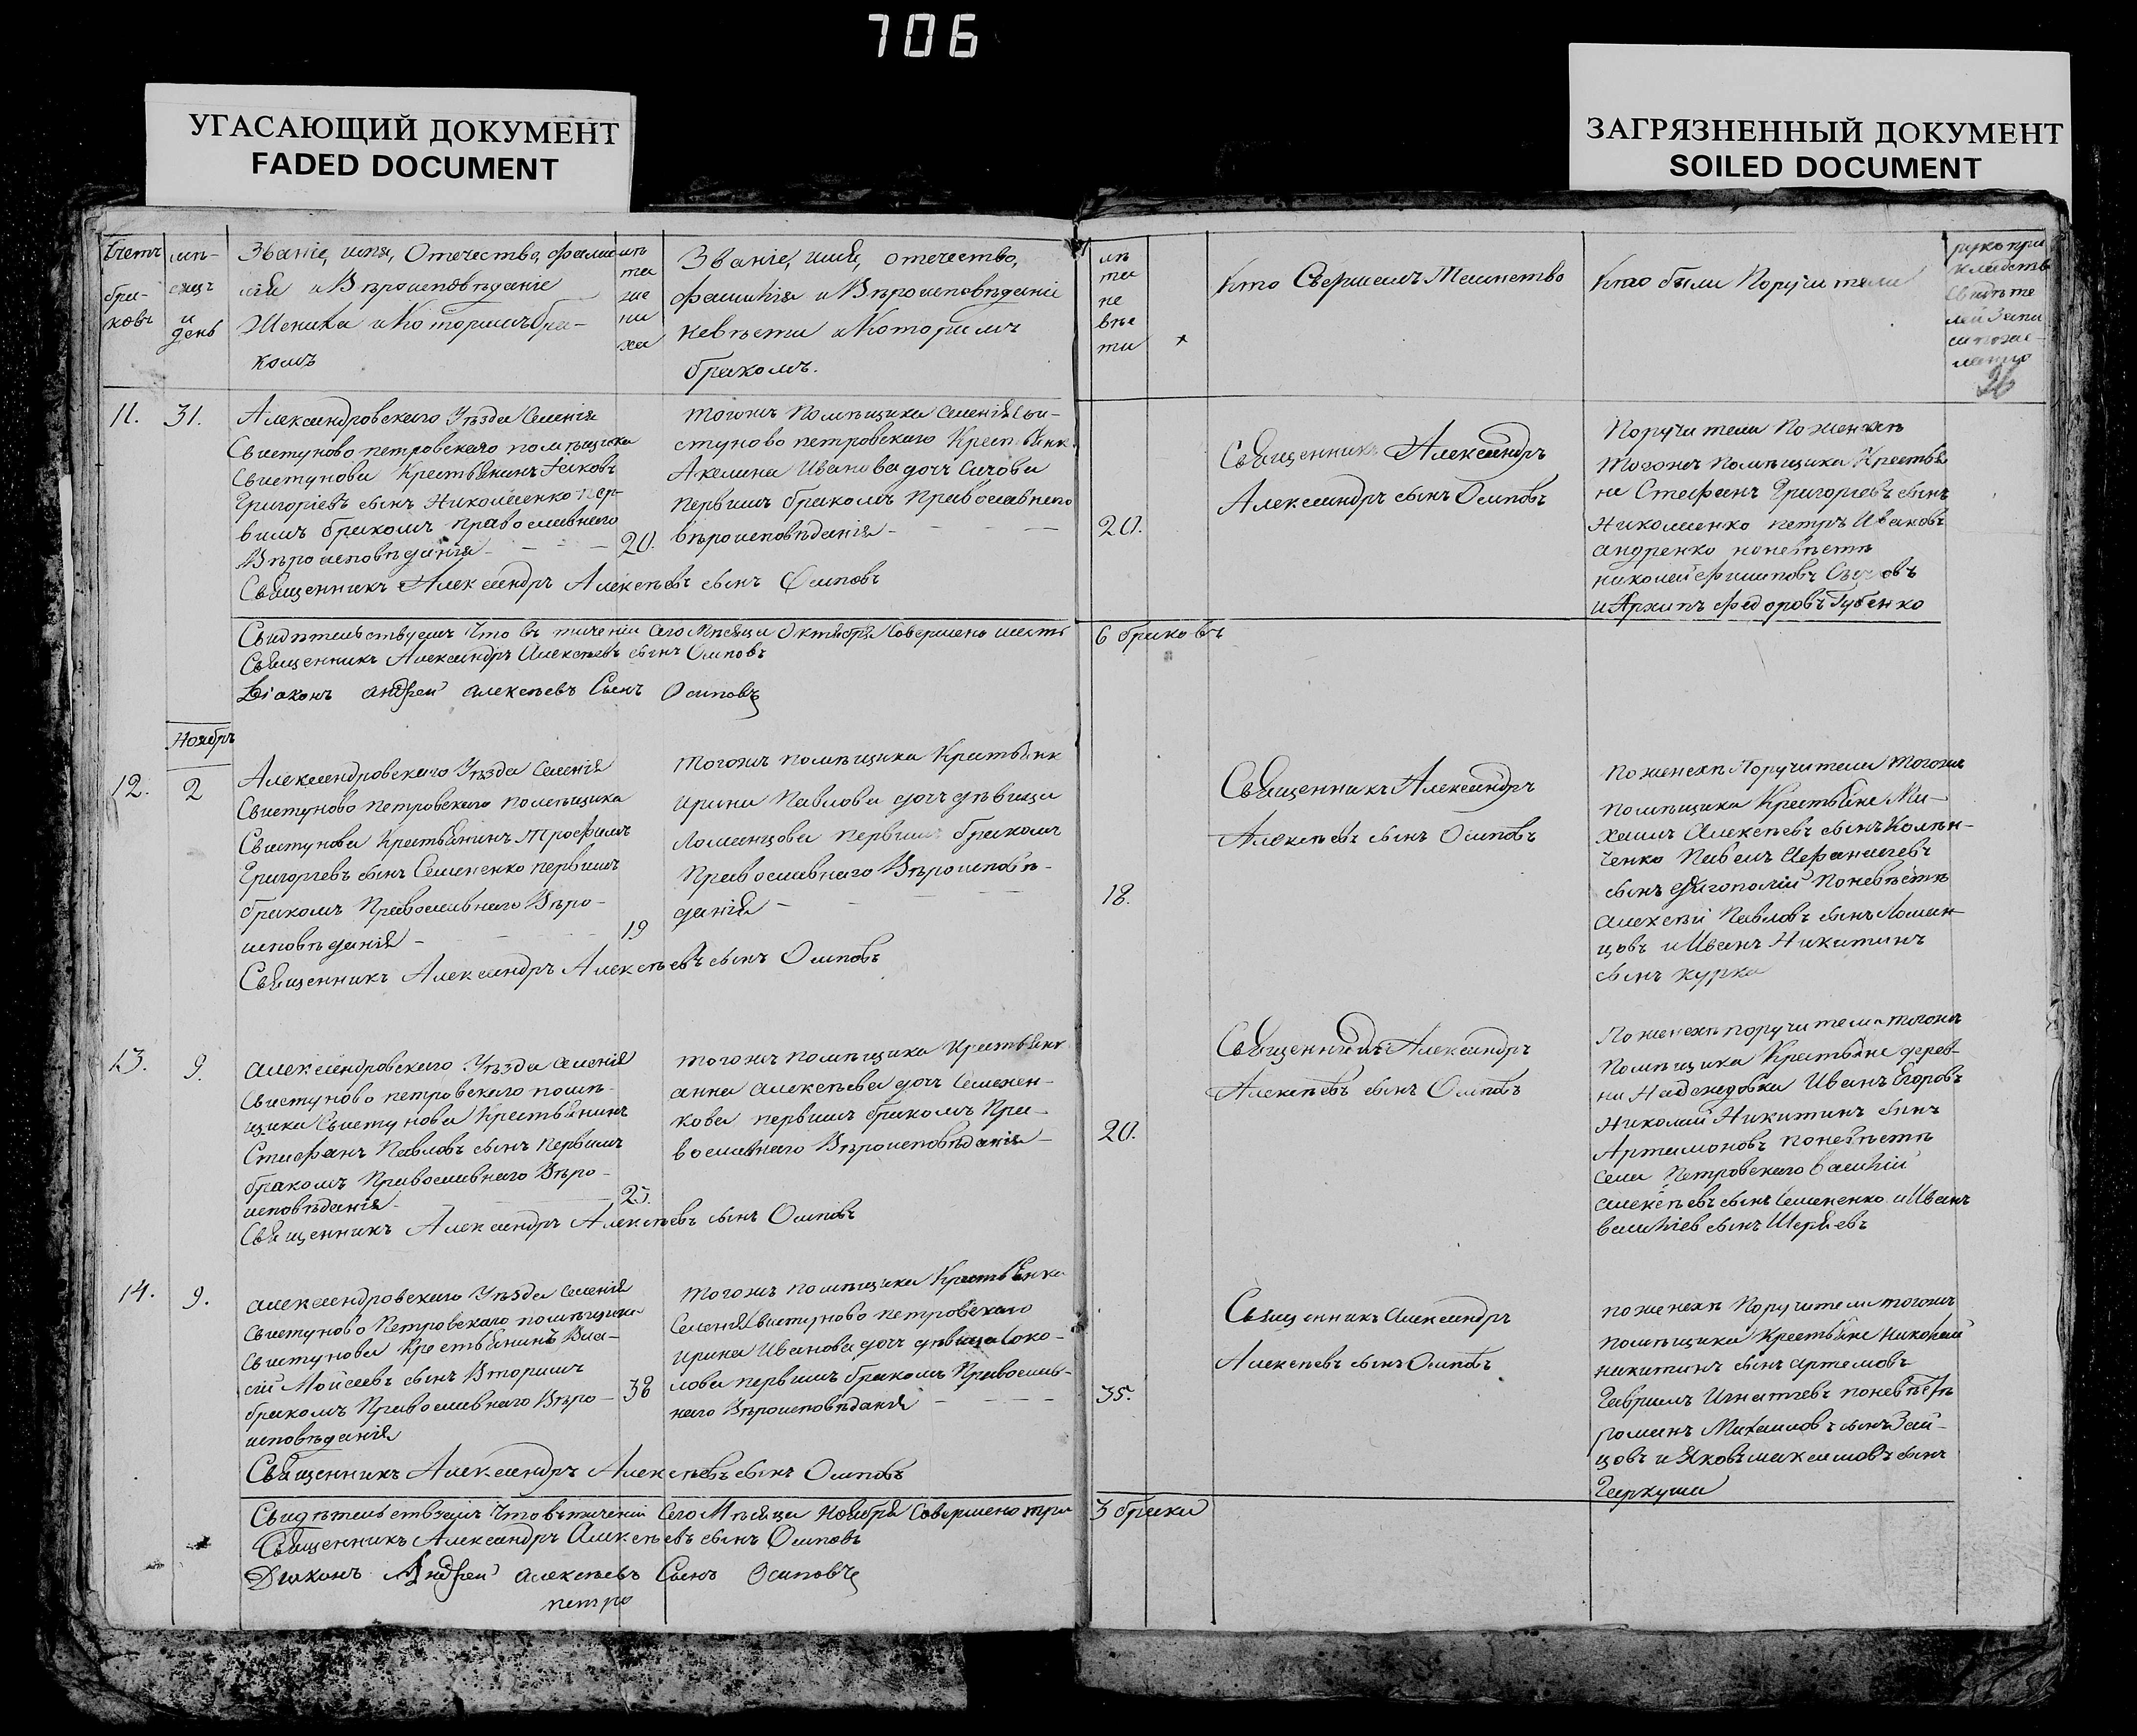 706
УГАСАЮЩИЙ ДОКУМЕНТ
FADED DOCUMENT
ЗАГРЯЗНЕННЫЙ ДОКУМЕНТ
SOILED DOCUMENT
Счетъ
бра-
ковъ
мѣ-
сяцъ
и
день
Званіе, имя, Отечество, фами
лія и Вѣроисповѣданіе
Жениха и Которимъ бра-
комъ
лѣ
та
же
ни
ха
Званіе, имя, отечество,
фамилія и Вѣроисповѣданіе
невѣсти и Которимъ
бракомъ.
лѣ
та
не
вѣс
ти
Кто Свершалъ Таинство
Кто были Поручители
рукопри
кладств
Свидѣте
лей Запи
си по же-
ланію
26
11.
31.
Александровскаго Уѣзда Селенія
Свистуново петровскаго помѣщика
Свистунова Крестьянинъ Яковъ
Григоріевъ сынъ Николаенко пер-
вимъ бракомъ православнаго
Вѣроисповѣданія
20.
Священникъ Александръ Алексѣевъ сынъ Осиповъ
тогожъ помѣщика селенія Сви-
стуново петровскаго Крестьянк
Акелина Иванова дочь Сичова
первимъ бракомъ Православнаго
вѣроисповѣданія
20.
Священникъ Александръ
Александръ сынъ Осиповъ
Поручители По женихѣ
тогожъ помѣщика Крестья
не Стефанъ Григорьевъ сынъ
Николаенко петръ Ивановъ
андренко поневѣстѣ
николай филиповъ Сычовъ
и Архипъ Федоровъ Губенко
Свидѣтельствуемъ Что въ теченіи Сего Мѣсяца Октября Совершено шесть
6 браковъ
Священникъ Александръ Алексѣевъ сынъ Осиповъ
Діаконъ андрей алексѣевъ Сынъ Осиповъ
Ноябрь
12.
2
Александровскаго Уѣзда Селенія
Свистуново Петровскаго помѣщика
Свистунова Крестьянинъ Трофимъ
Григорьевъ сынъ Семененко первимъ
бракомъ Православнаго Вѣро-
исповѣданія
19
Священникъ Александръ Алексѣевъ сынъ Осиповъ
тогожъ помѣщика Крестьянк
ирина Павлова дочь дѣвица
Ломанцова первимъ бракомъ
Православнаго Вѣроисповѣ-
данія
18.
Священникъ Александръ
Алексѣевъ сынъ Осиповъ
По женихѣ Поручители тогожъ
помѣщика Крестьяне Ми-
хаилъ Алексѣевъ сынъ
ченко Павелъ Афанасіевъ
сынъ поневѣстѣ
алексѣй Павловъ сынъ Ломан
цовъ и Иванъ Никитинъ
сынъ курка
13.
9.
александровскаго Уѣзда селенія
Свистуново петровскаго помѣ-
щика Свистунова Крестьянинъ
Стефанъ Павловъ сынъ первимъ
бракомъ Православнаго Вѣро-
исповѣданія
25.
Священникъ Александръ Алексѣевъ сынъ Осиповъ
тогожъ помѣщика Крестьянк
анна алексѣева дочь Семенен-
кова первимъ бракомъ Пра-
вославнаго Вѣроисповѣданія
20.
Священникъ Александръ
Алексѣевъ сынъ Осиповъ
По женихѣ поручители тогожъ
помѣщика Крестьяне дерев-
ни Надеждовка Иванъ Егоровъ
Николай Никитинъ сынъ
Артамоновъ поневѣстѣ
села Петровскаго василій
алексѣевъ сынъ Семененко и Иванъ
василіев сынъ
14.
9.
александровскаго Уѣзда Селенія
Свистуново Петровскаго помѣщика
Свистунова Крестьянинъ Вла-
сій Мойсеевъ сынъ Вторимъ
бракомъ Православнаго Вѣро-
исповѣданія
38
Священникъ Александръ Алексѣевъ сынъ Осиповъ
тогожъ помѣщика Крестьянка
Селенія Свистуново петровскаго
ирина Иванова дочь дѣвица Соко-
лова первимъ бракомъ Православ-
наго Вѣроисповѣданія
35.
Священникъ александръ
Алексѣевъ сынъ Осиповъ
по женихѣ Поручители тогожъ
помѣщика Крестьяне николай
никитинъ сынъ артемовъ
Гавриилъ Игнатіевъ поневѣстѣ
романъ Михаиловъ сынъ Зай-
цовъ и Яковъ максимовъ сынъ
Гаркуша
Свидѣтельствуемъ Что въ теченіи Сего Мѣсяца Ноября Совершено три
3 брака
Священникъ Александръ Алексѣевъ сынъ Осиповъ
Діаконъ Андрей алексѣевъ Сынъ Осиповъ
петро